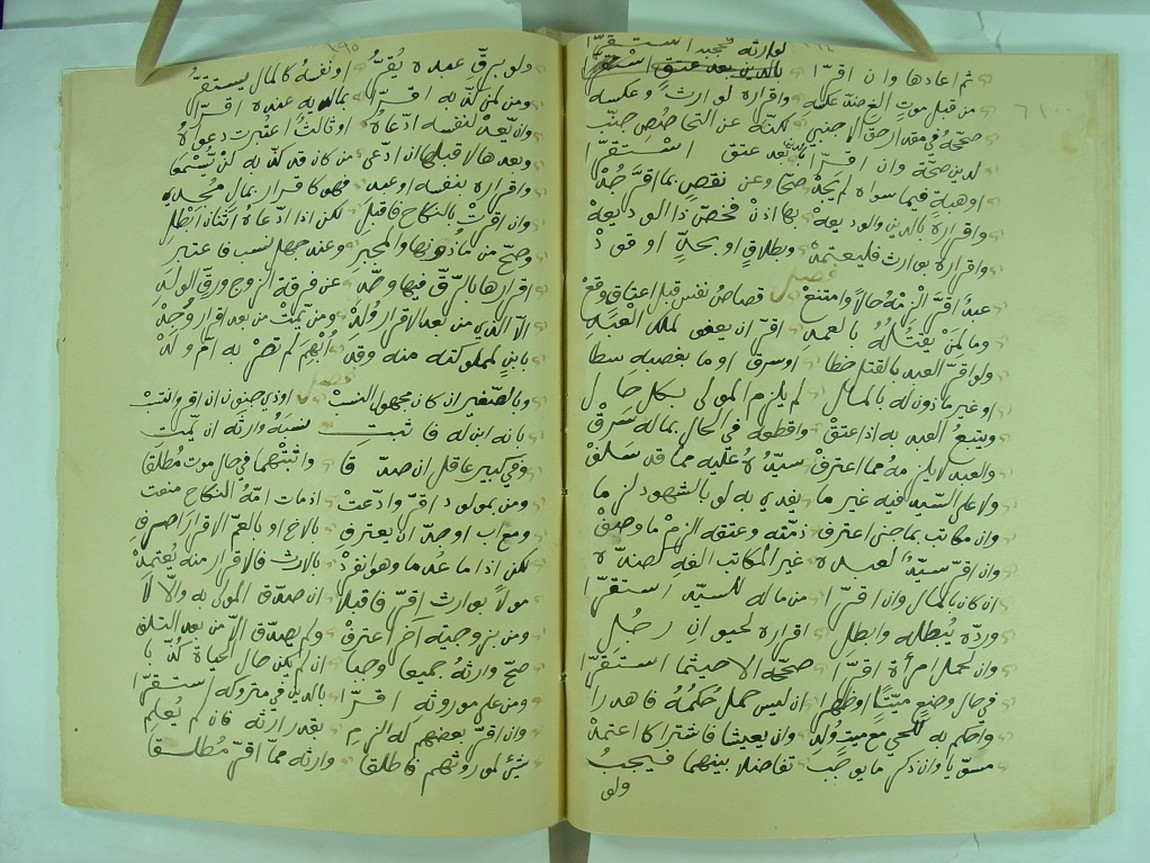 لوارثه فيجد استقرا
ثم اعادها وان اقرا بالدين بعد عتق استقرا
من قبل موت الغ ضد عكسه واقراره لوارث وعكسه
صحته في مقدار حق الاجنبي لكنه عن التحاصص جنب
لدين صحة وان اقرا بالدين بعد عتق استقرا
اوهبة فيما سواه لم يجد صحا وعن نقص بما اقر حد
واقراره بالدين والوديعه بها اذن فخص ذا الوديعه
واقراره بوارث فليعتمد وبطلاق او بحد او قود
فصل
عبد اقر الزمه حالا وامتنع قصاص نفس قبل اعتاق وقع
وما لمن يقتله بالعمد اقر ان يعفى لملك العبد
ولو اقر العبد بالقتل خطا او سرق او ما بغصبه سطا
او غير ماذون له بالمال لم يلزم المولى بكل حال
ويتبع العبد به اذ اعتق واقطعه في الحال بماله سرق
والعبد لا يلزمه مما اعترف سيده عليه مما قد سلف
ولا على السيد فيه غير ما يفديه به لو بالشهود لزما
وان مكاتب بما جنى اعترف ذمته وعتقه الزم ما وصف
وان اقر سيد لعبده غير المكاتب الغه لصده
ان كان بالمال وان اقرا من ماله للسيد استقرا
ورده يبطله وابطل اقراره لحيوان رجل
وان لحمل امرأة اقرا صحته الا حيثما استقرا
في حال وضع ميتا او ظهرا ان ليس حمل حكمه فاهدرا
واحكم به للحي مع ميت ولد وان يعيشا فاشتراكا اعتمد
مسويا وان ذكر ما يوجب تفاضلا بينهما فيجب
ولو
ولو برق عبده يقر او نفسه كالمال يستقر
ومن لمن كذبه اقرا بماله به عنده اقرا
وان يعد لنفسه ادعاه او ثالثا اعتبرت دعواه
وبعدها لا قبلها ان ادعى من كان قد كذبه لن يسمعا
واقراره بنفسه او عبد فهو كاقرار بمال مجدي
وان اقرت بالنكاح فاقبل لكن اذا ادعاه اثنان ابطل
وصح من ماذونها والمجبر وعند جهل نسب فاعتبر
اقرارها بالرق فيها وصد عن فرقة الزوج ورق الولد
الا الذي من بعد الاقرار ولد ومن يمت من بعد اقرار وجد
بابن لمملوكته منه وقد ابهم لم تصر به ام ولد
فصل
وبالصغير ان كان مجهول النسب او ذي جنون ان اقر وانتسب
بانه ابن له فاثبت نسبه وارثه ان يمت
وفي كبير عاقل ان صدقا واثبتهما في حال موت مطلقا
ومن بمولود اقر وادعت اذ مات امه النكاح منعت
ومع اب او جد ان يعترف بالاخ او بالعم الاقرار اصرف
لكن اذا ما عدما وهو انفرد بالارث فالاقرار منه يعتمد
مولا بوارث اقر فاقبلا ان صدق المولى به والا لا
ومن بزوجية آخر اعترف ولم يصدق الا من بعد التلف
صح وارثه جميعا وجبا ان لم يكن حال الحياة كذبا
ومن على موروثه اقرا بالدين في متروكه استقرا
وان اقر بعضهم له الزم بقدر ارثه فان لم يعلم
شيئ لموروثهم فاطلقا وارثه مما اقر مطلقا